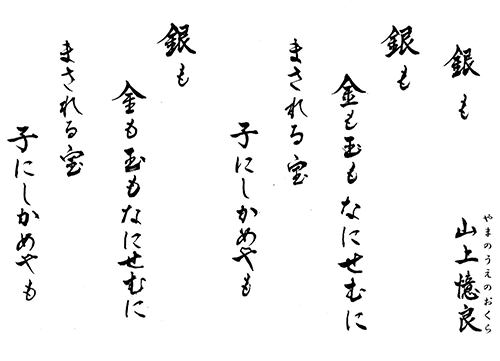 銀も　山上憶良
やまのうえのおくら
銀も
金も玉もなにせむに
まされる宝
子にしかめやも
銀も
金も玉もなにせむに
まされる宝
子にしかめやも